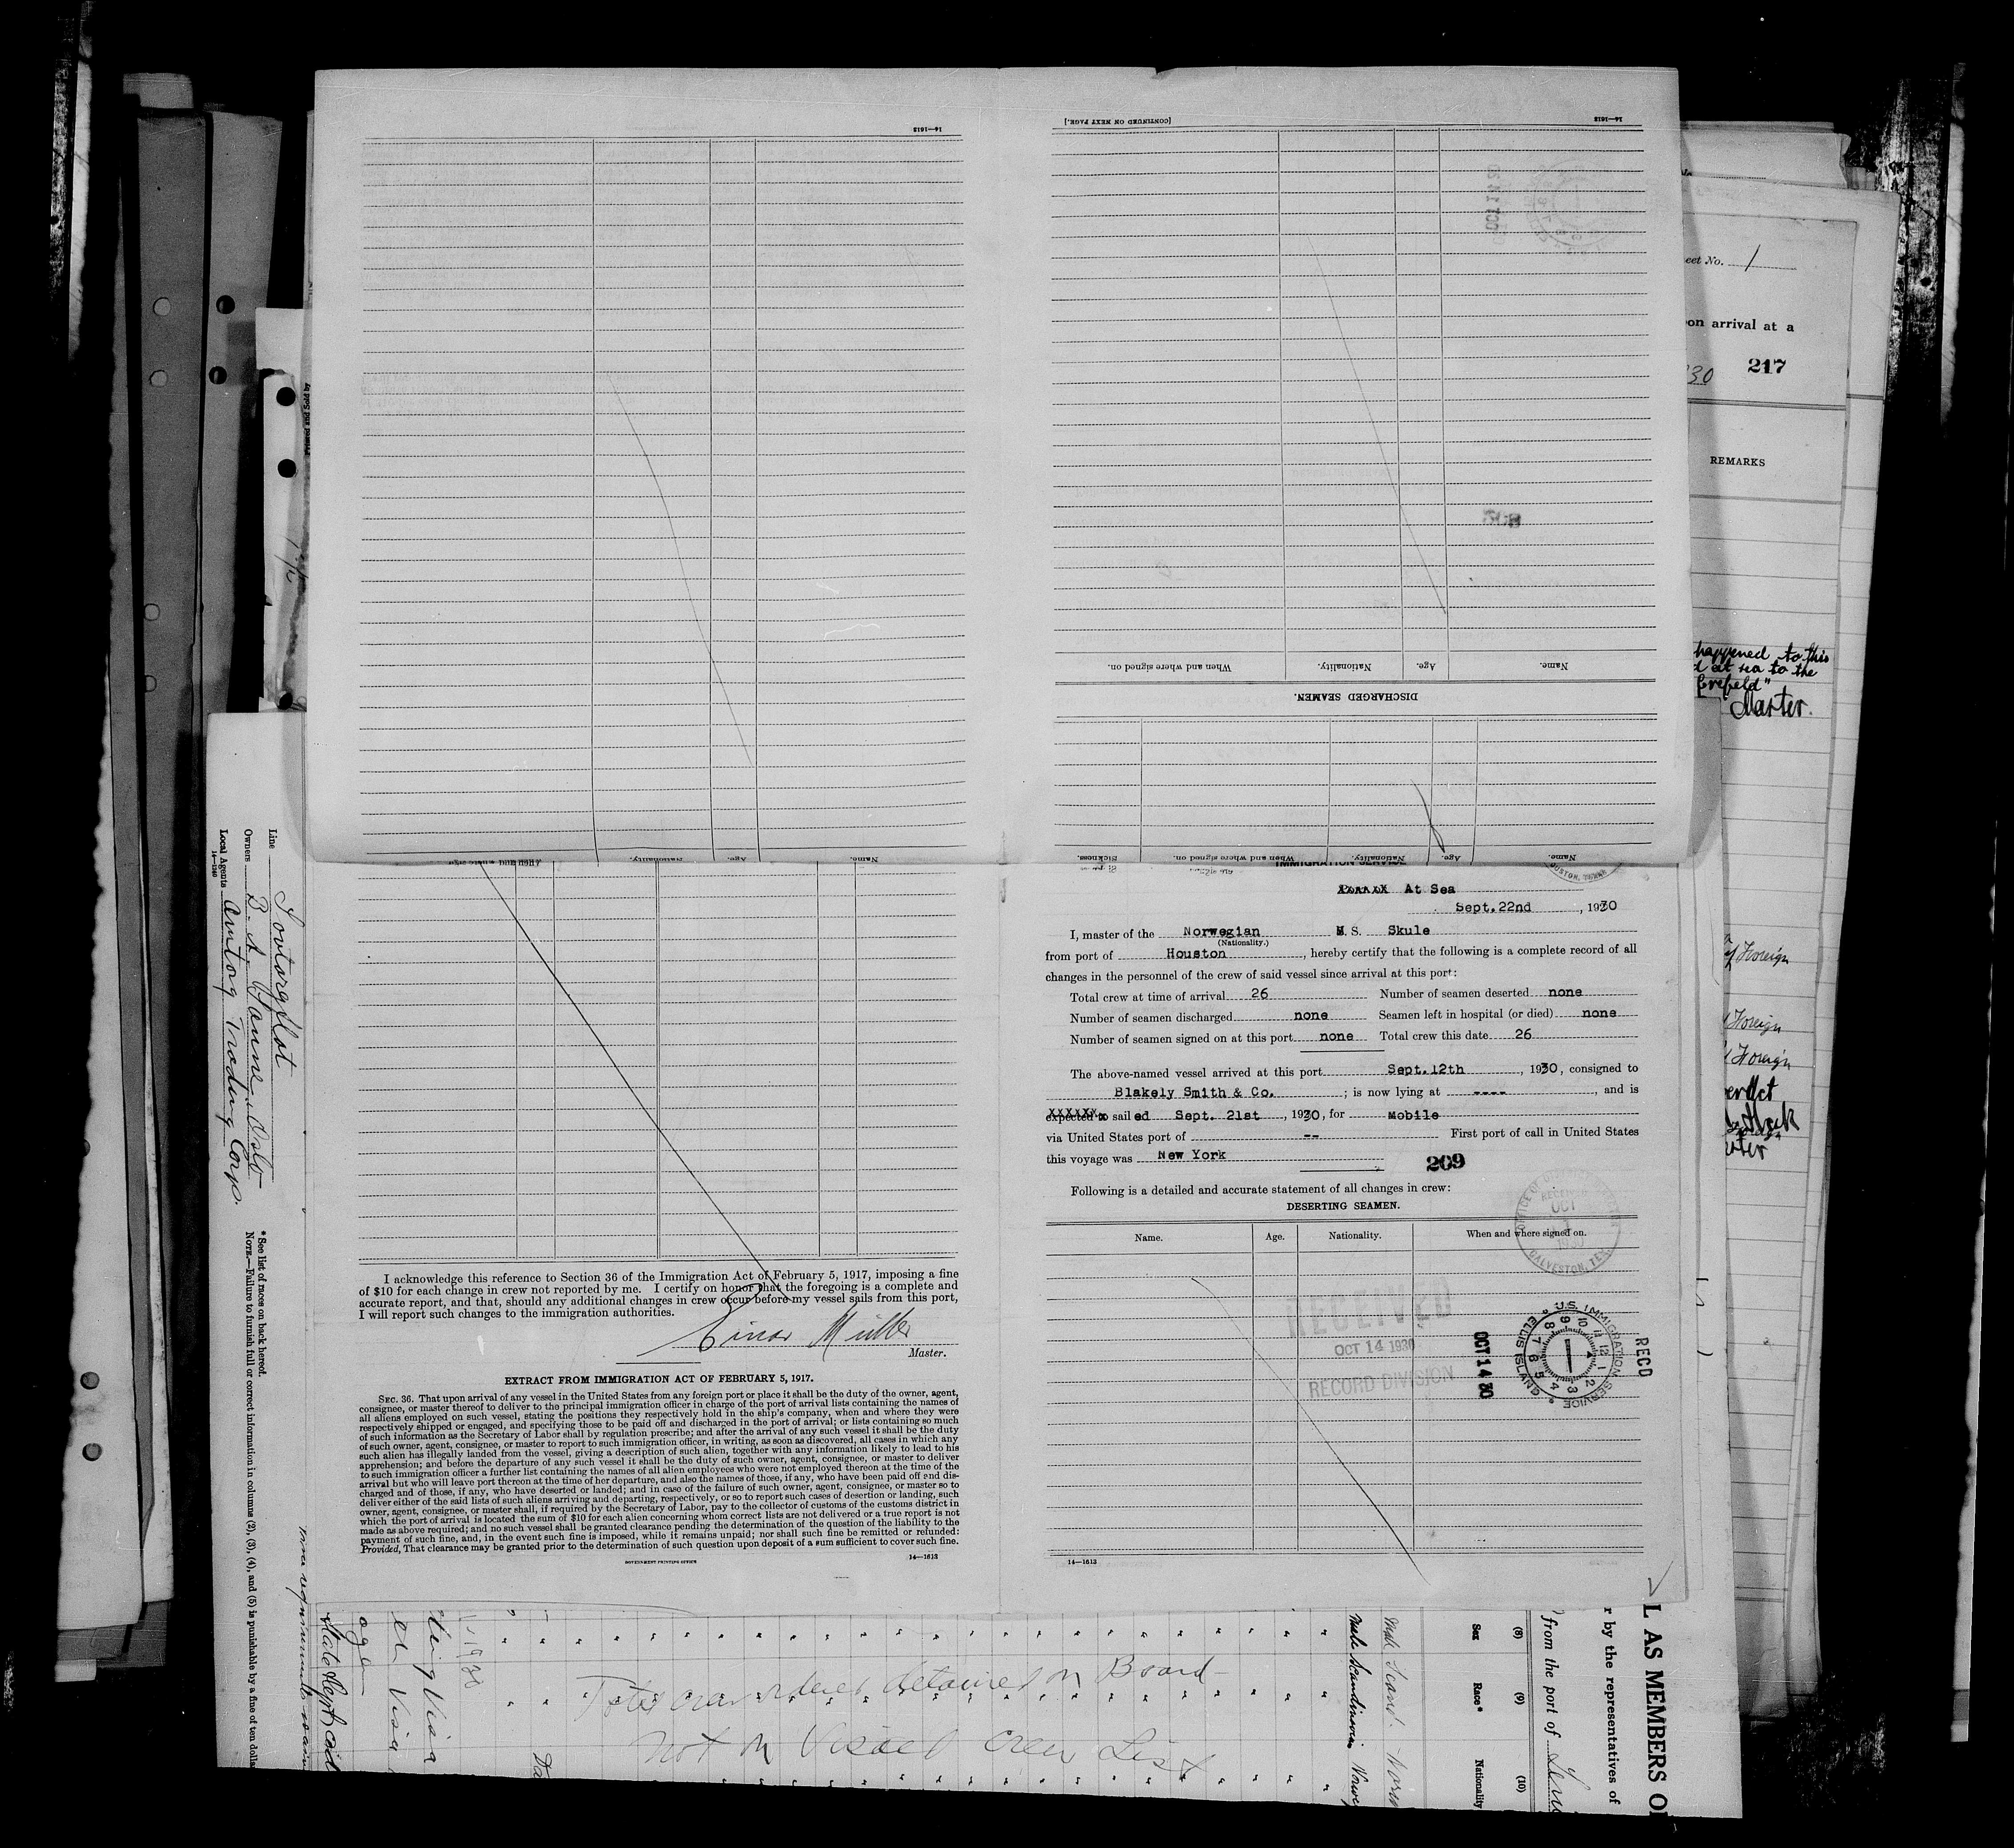 14—1613
[CONTINUED ON NEXT PAGE.]
14—1613
Name.
Age.
Nationality.
When and where signed on.
DISCHARGED SEAMEN.
Name.
Age.
Nationality.
When and where signed on.
Sickness.
Name.
Age.
Nationality.
IMMIGRATION SERVICE
At Sea
Sept.22nd, 1930
I, master of the Norwegian M. S. Skule
(Nationality.)
from port of Houston, hereby certify that the following is a complete record of all
changes in the personnel of the crew of said vessel since arrival at this port:
Total crew at time of arrival 26 Number of seamen deserted none
Number of seamen discharged none Seamen left in hospital (or died) none
Number of seamen signed on at this port none Total crew this date 26
The above-named vessel arrived at this port Sept.12th, 1930, consigned to
Blakely Smith & Co. ; is now lying at ----, and is
expected to sailed Sept. 21st, 1930, for Mobile
via United States port of -- First port of call in United States
this voyage was New York
209
Following is a detailed and accurate statement of all changes in crew:
DESERTING SEAMEN.
Name. Age. Nationality. When and where signed on.
RECEIVED
OCT
1930
GALVESTON, TEX.
RECEIVED
OCT 14 1930
RECORD DIVISION
OCT 14 30
U.S. IMMIGRATION SERVICE
ELLIS ISLAND
RECD
14—1613
I acknowledge this reference to Section 36 of the Immigration Act of February 5, 1917, imposing a fine
of $10 for each change in crew not reported by me. I certify on honor that the foregoing is a complete and
accurate report, and that, should any additional changes in crew occur before my vessel sails from this port,
I will report such changes to the immigration authorities.
Einar Müller
Master.
EXTRACT FROM IMMIGRATION ACT OF FEBRUARY 5, 1917.
SEC. 36. That upon arrival of any vessel in the United States from any foreign port or place it shall be the duty of the owner, agent,
consignee, or master thereof to deliver to the principal immigration officer in charge of the port of arrival lists containing the names of
all aliens employed on such vessel, stating the positions they respectively hold in the ship's company, when and where they were
respectively shipped or engaged, and specifying those to be paid off and discharged in the port of arrival; or lists containing so much
of such information as the Secretary of Labor shall by regulation prescribe; and after the arrival of any such vessel it shall be the duty
of such owner, agent, consignee, or master to report to such immigration officer, in writing, as soon as discovered, all cases in which any
such alien has illegally landed from the vessel, giving a description of such alien, together with any information likely to lead to his
apprehension; and before the departure of any such vessel it shall be the duty of such owner, agent, consignee, or master to deliver
to such immigration officer a further list containing the names of all alien employees who were not employed thereon at the time of the
arrival but who will leave port thereon at the time of her departure, and also the names of those, if any, who have been paid off and dis-
charged and of those, if any, who have deserted or landed; and in case of the failure of such owner, agent, consignee, or master so to
deliver either of the said lists of such aliens arriving and departing, respectively, or so to report such cases of desertion or landing, such
owner, agent, consignee, or master shall, if required by the Secretary of Labor, pay to the collector of customs of the customs district in
which the port of arrival is located the sum of $10 for each alien concerning whom correct lists are not delivered or a true report is not
made as above required; and no such vessel shall be granted clearance pending the determination of the question of the liability to the
payment of such fine, and, in the event such fine is imposed, while it remains unpaid; nor shall such fine be remitted or refunded:
Provided, That clearance may be granted prior to the determination of such question upon deposit of a sum sufficient to cover such fine.
GOVERNMENT PRINTING OFFICE
14—1613
Printed and Sold by
Line Sovtorgflot
Owners B. A. Sanne, Oslo
Local Agents Amtorg Trading Corp.
14—1240
* See list of races on back hereof.
NOTE.—Failure to furnish full or correct information in columns (2), (3), (4), and (5) is punishable by a fine of ten dolla
eet No. 1
on arrival at a
30 217
REMARKS
happened to this
d at sea to the
Crefeld"
Master.
Foreign
Foreign
Foreign
detained on Board
not on Visaed Crew List
Visa
Visa
Male Scandinavian
Male Scand.
(8)
Sex
(9)
Race*
(10)
Nationality
from the port of
r by the representatives of
L AS MEMBERS O